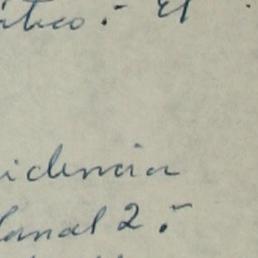 ático.- El
idencia
Canal 2.-